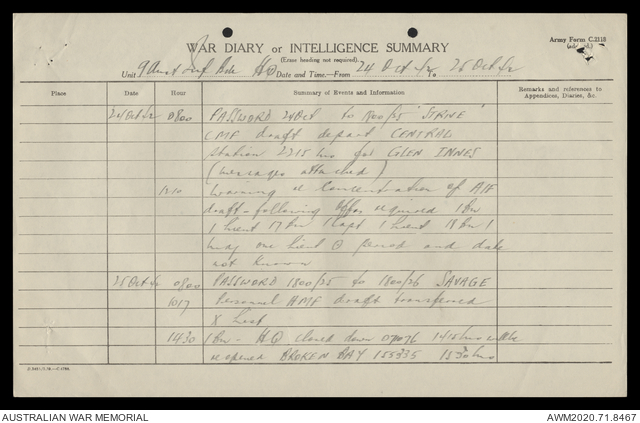 Army Form C.2118
WAR DIARY or INTELLIGENCE SUMMARY
(Erase heading not required).
Unit 9 Aust Inf Bde HQ Date and Time—From 24 Oct 42 To 25 Oct 42
Place Date Hour Summary of Events and Information Remarks and references to Appendices, Diaries, &c.
24 Oct 42 0800 PASSWORD 24 Oct to 1800/25 "STRIVE"
CMF draft depart CENTRAL
station 2315 hrs for GLEN INNES
(messages attached)
1210 Warning re Concentration of AIF
draft - following offrs required 1 Bn
1 Lieut 17 Bn 1 Capt 1 Lieut 18 Bn 1
one Lieut period and date
not known
25 Oct 42 0800 PASSWORD 1800/25 to 1800/26 SAVAGE
1017 Personnel AMF draft transferred
X List
1430 1 Bn - HQ closed down 1415 hrs
reopened BROKEN BAY 155335 1530 hrs
AUSTRALIAN WAR MEMORIAL
AWM2020.71.8467